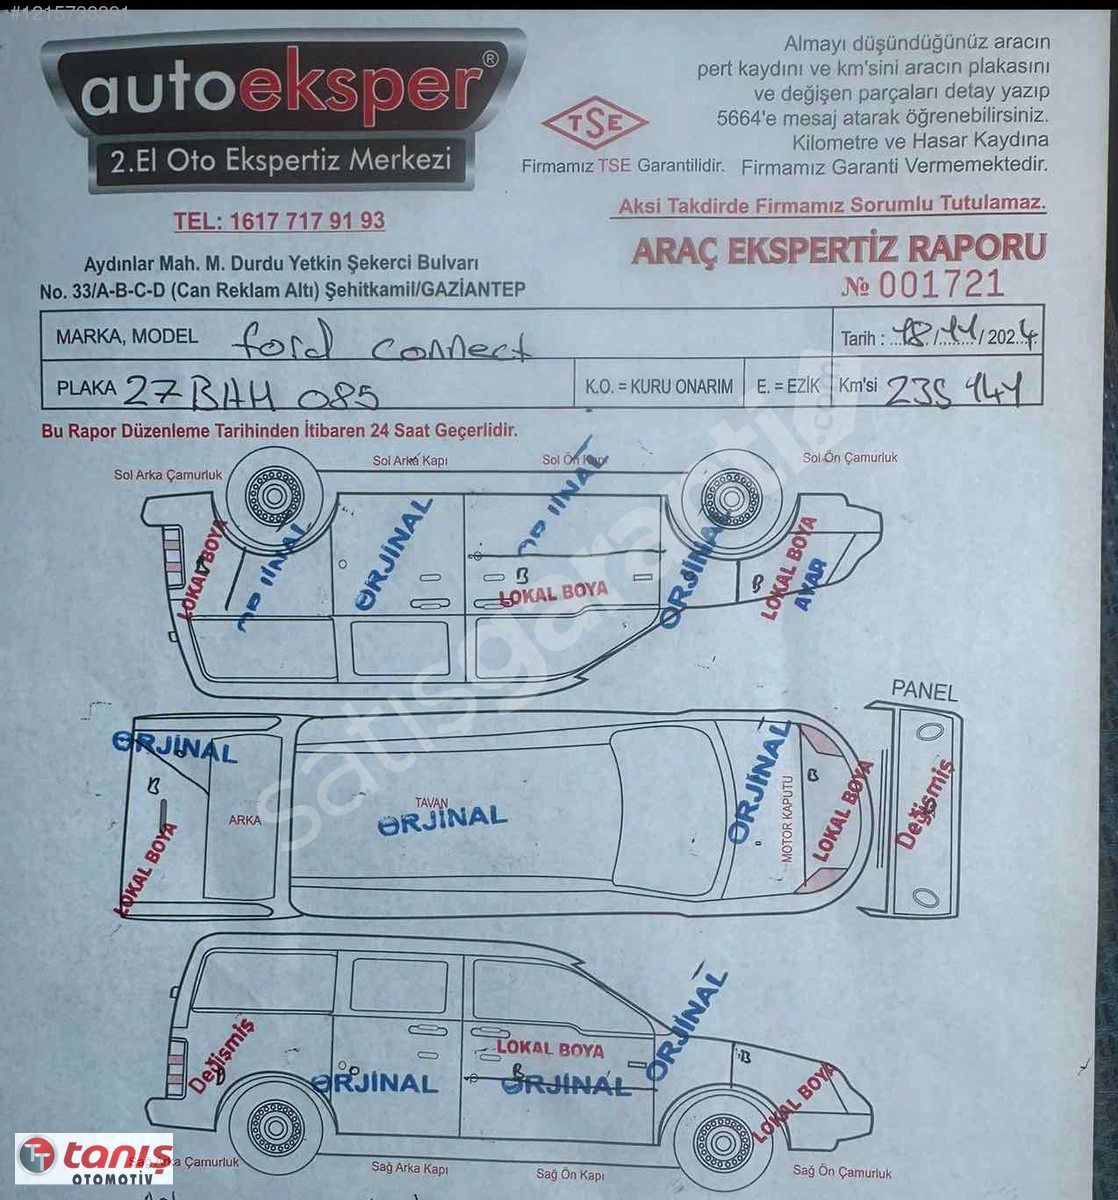 #1215736391
autoeksper®
2.El Oto Ekspertiz Merkezi
TEL: 1617 717 91 93
Aydınlar Mah. M. Durdu Yetkin Şekerci Bulvarı
No. 33/A-B-C-D (Can Reklam Altı) Şehitkamil/GAZİANTEP
TSE
Firmamız TSE Garantilidir.
Almayı düşündüğünüz aracın
pert kaydını ve km'sini aracın plakasını
ve değişen parçaları detay yazıp
5664'e mesaj atarak öğrenebilirsiniz.
Kilometre ve Hasar Kaydına
Firmamız Garanti Vermemektedir.
Aksi Takdirde Firmamız Sorumlu Tutulamaz.
ARAÇ EKSPERTİZ RAPORU
№ 001721
MARKA, MODEL ford connect
Tarih : 18/11/2024
PLAKA 27 BAH 085
K.O. = KURU ONARIM
E. = EZİK
Km'si 235 141
Bu Rapor Düzenleme Tarihinden İtibaren 24 Saat Geçerlidir.
Sol Arka Çamurluk
Sol Arka Kapı
Sol Ön Kapı
Sol Ön Çamurluk
LOKAL BOYA
ORJİNAL
B
LOKAL BOYA
ORJİNAL
B
LOKAL BOYA
AYAR
PANEL
ORJİNAL
B
LOKAL BOYA
ARKA
TAVAN
ORJİNAL
ORJİNAL
MOTOR KAPUTU
B
LOKAL BOYA
Değişmiş
Değişmiş
ORJİNAL
LOKAL BOYA
B
ORJİNAL
ORJİNAL
B
LOKAL BOYA
Sağ Arka Çamurluk
Sağ Arka Kapı
Sağ Ön Kapı
Sağ Ön Çamurluk
satışgaranti
tanış
OTOMOTİV